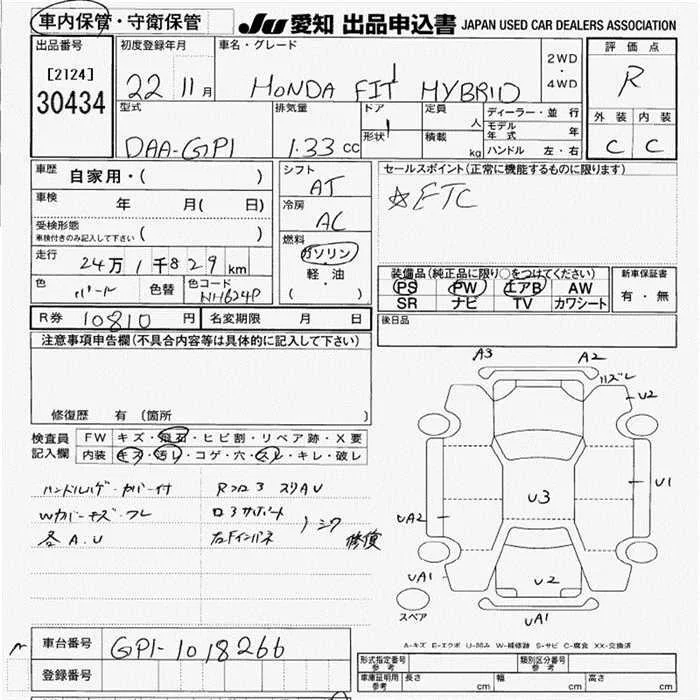 車内保管・守衛保管 JU 愛知 出品申込書 JAPAN USED CAR DEALERS ASSOCIATION
出品番号 初度登録年月 車名・グレード 2WD・4WD 評価点
[2124]
30434 22 11月 HONDA FIT HYBRID R
型式 排気量 ドア 定員 人 ディーラー・並行 外装 内装
モデル年式 年
DAA-GP1 1.33cc 形状 積載 kg ハンドル 左・右 C C
車歴 自家用・( ) シフト AT セールスポイント(正常に機能するものに限ります)
車検 年 月( 日) 冷房 AC ☆ETC
受検形態
車検付きのみ記入して下さい ( )
走行 24万1千829km 燃料 ガソリン 軽・油 ( ・ )
装備品(純正品に限り○をつけてください) 新車保証書
PS PW エアB AW 有・無
SR ナビ TV カワシート
色 パール 色替 色コード NH624P
後日品
R券 10810円 名変期限 月 日
注意事項申告欄(不具合内容等は具体的に記入して下さい)
修復歴 有 (箇所 )
検査員記入欄 FW キズ・飛石・ヒビ割・リペア跡・X要
内装 キズ・汚レ・コゲ・穴・スレ・キレ・破レ
ハンドルハゲ・カバー付 Rコロ3 スリAU
Wカバーキズ・フレ ロ3サポート
各A.U 右Fインパネ シワ 修復
A3 A2
ハズレ
U2
U1
U3
UA2
UA1
U2
UA1
スペア
A-キズ E-エクボ U-凹み W-補修跡 S-サビ C-腐食 XX-交換済
車台番号 GP1-1018266
登録番号
形式指定番号 参考 類別区分番号 参考
車庫証明用 参考 長さ cm 幅 cm 高さ cm